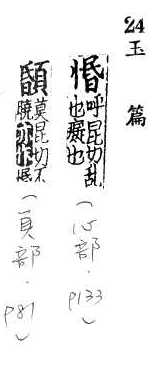 24玉篇
惛呼昆切乱也癡也
(心部.P133)
顝莫昆切不曉亦作惛
(頁部.P81)